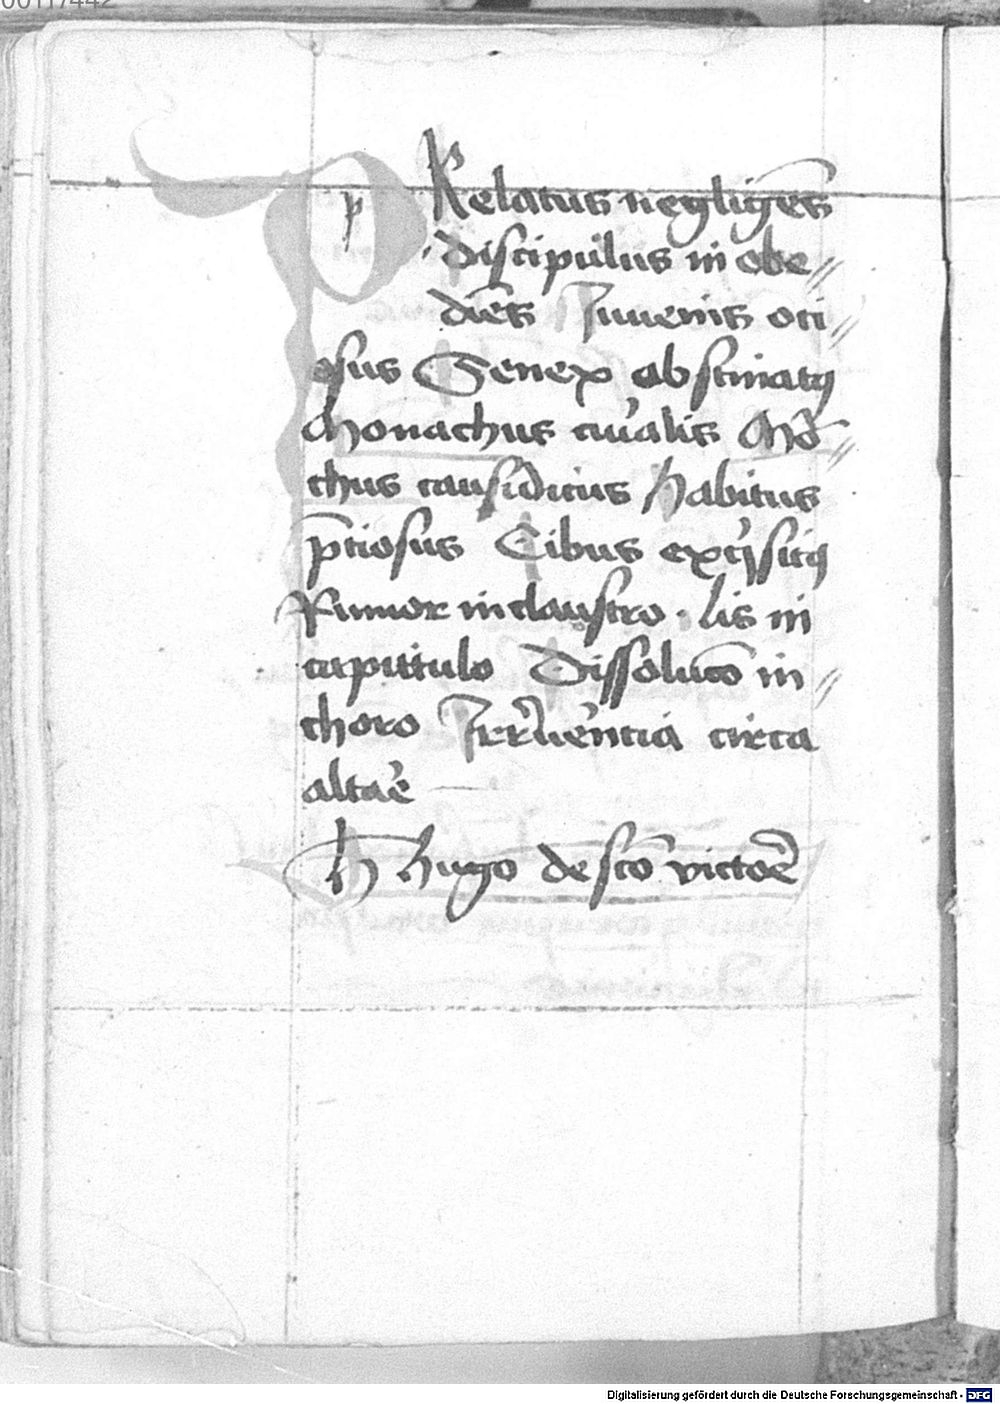 00117442
p PRelatus negligēs
discipulus in obe⸗
diēs Iuuenis oci⸗
osus Senex obstinatꝰ
Monachus curialis Mo̅⸗
chus causidicus Habitus
p̄ciosus Cibus exq̇sitꝰ
Rumor in claustro · lis in
capittulo Dissoluco̅ in⸗
choro Irreu̾encia circa
altar̄e
h Hugo de sco̅ victor̄e
Digitalisierung gefördert durch die Deutsche Forschungsgemeinschaft - DFG